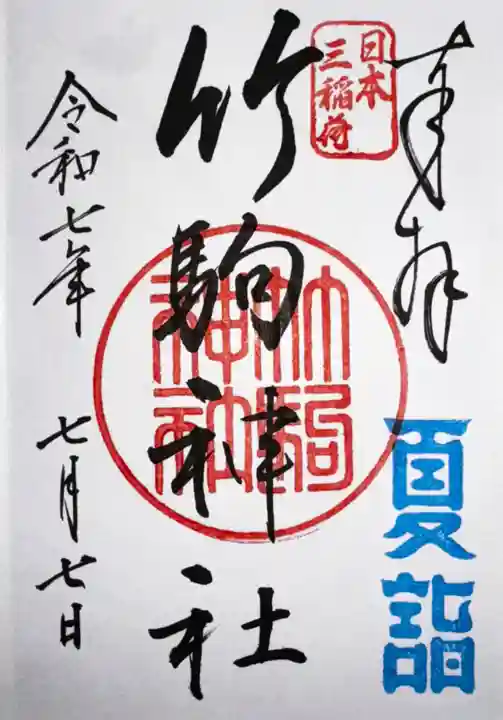 奉拝
日本
三稲荷
夏詣
竹駒神社
竹駒
神社
令和七年 七月七日